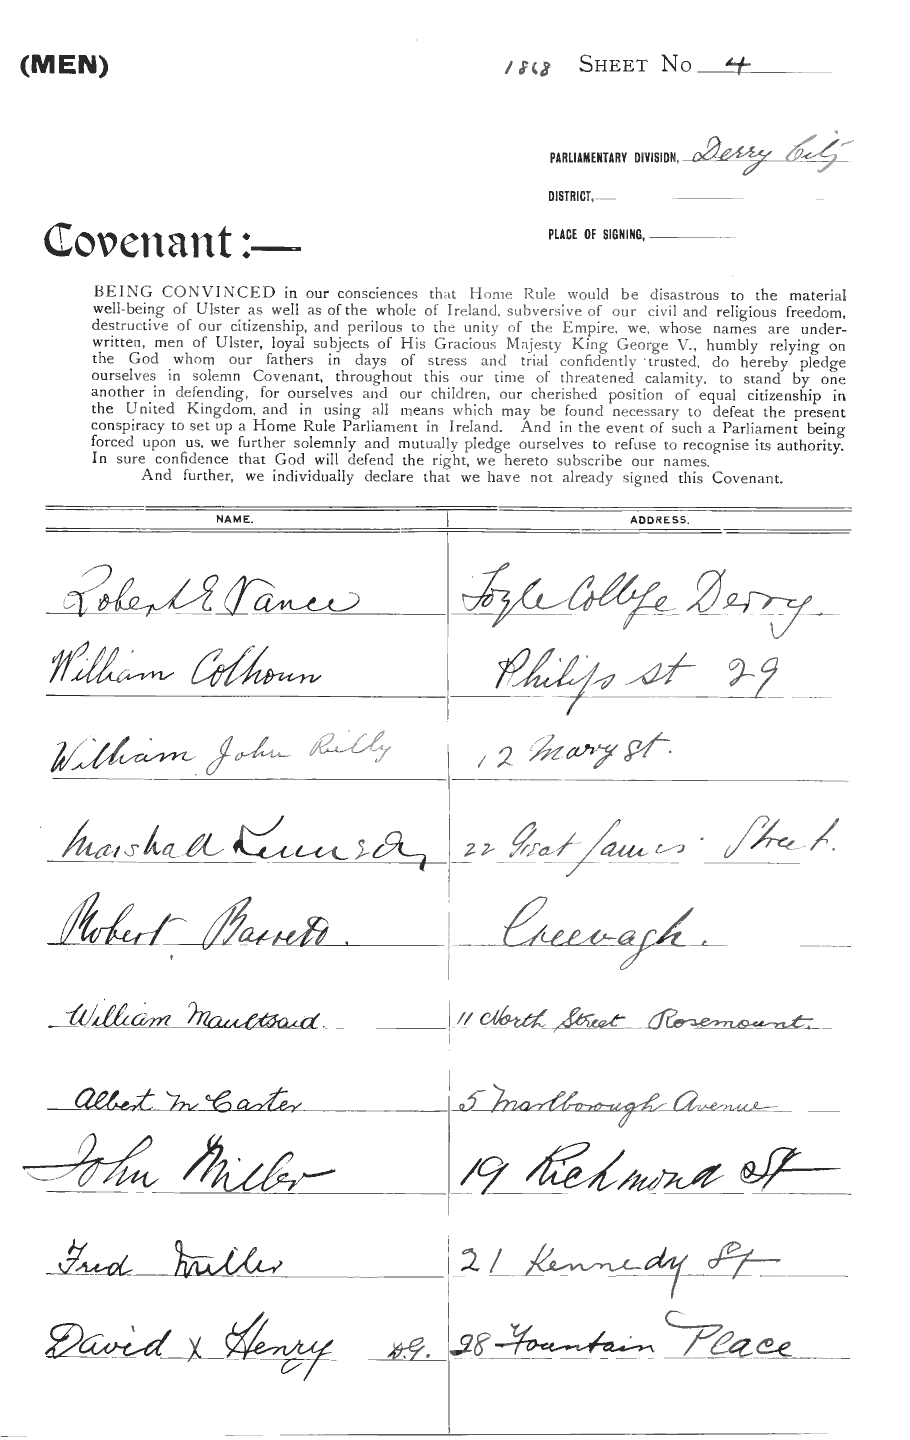 (MEN)
1868 SHEET No 4
PARLIAMENTARY DIVISION, Derry City
DISTRICT,
PLACE OF SIGNING,
Covenant:—
BEING CONVINCED in our consciences that Home Rule would be disastrous to the material
well-being of Ulster as well as of the whole of Ireland, subversive of our civil and religious freedom,
destructive of our citizenship, and perilous to the unity of the Empire, we, whose names are under-
written, men of Ulster, loyal subjects of His Gracious Majesty King George V., humbly relying on
the God whom our fathers in days of stress and trial confidently trusted, do hereby pledge
ourselves in solemn Covenant, throughout this our time of threatened calamity, to stand by one
another in defending, for ourselves and our children, our cherished position of equal citizenship in
the United Kingdom, and in using all means which may be found necessary to defeat the present
conspiracy to set up a Home Rule Parliament in Ireland. And in the event of such a Parliament being
forced upon us, we further solemnly and mutually pledge ourselves to refuse to recognise its authority.
In sure confidence that God will defend the right, we hereto subscribe our names.
And further, we individually declare that we have not already signed this Covenant.
NAME. ADDRESS.
Robert E Vance Foyle College Derry.
William Colhoun Philips st 29
William John Reilly 12 Mary st.
Marshall Kennedy 22 Great James Street.
Robert Barrett. Creevagh.
William Maultsaid. 11 North Street Rosemount.
Albert McCarter 5 Marlborough Avenue
John Miller 19 Richmond St
Fred Miller 21 Kennedy St
David X Henry 28 Fountain Place